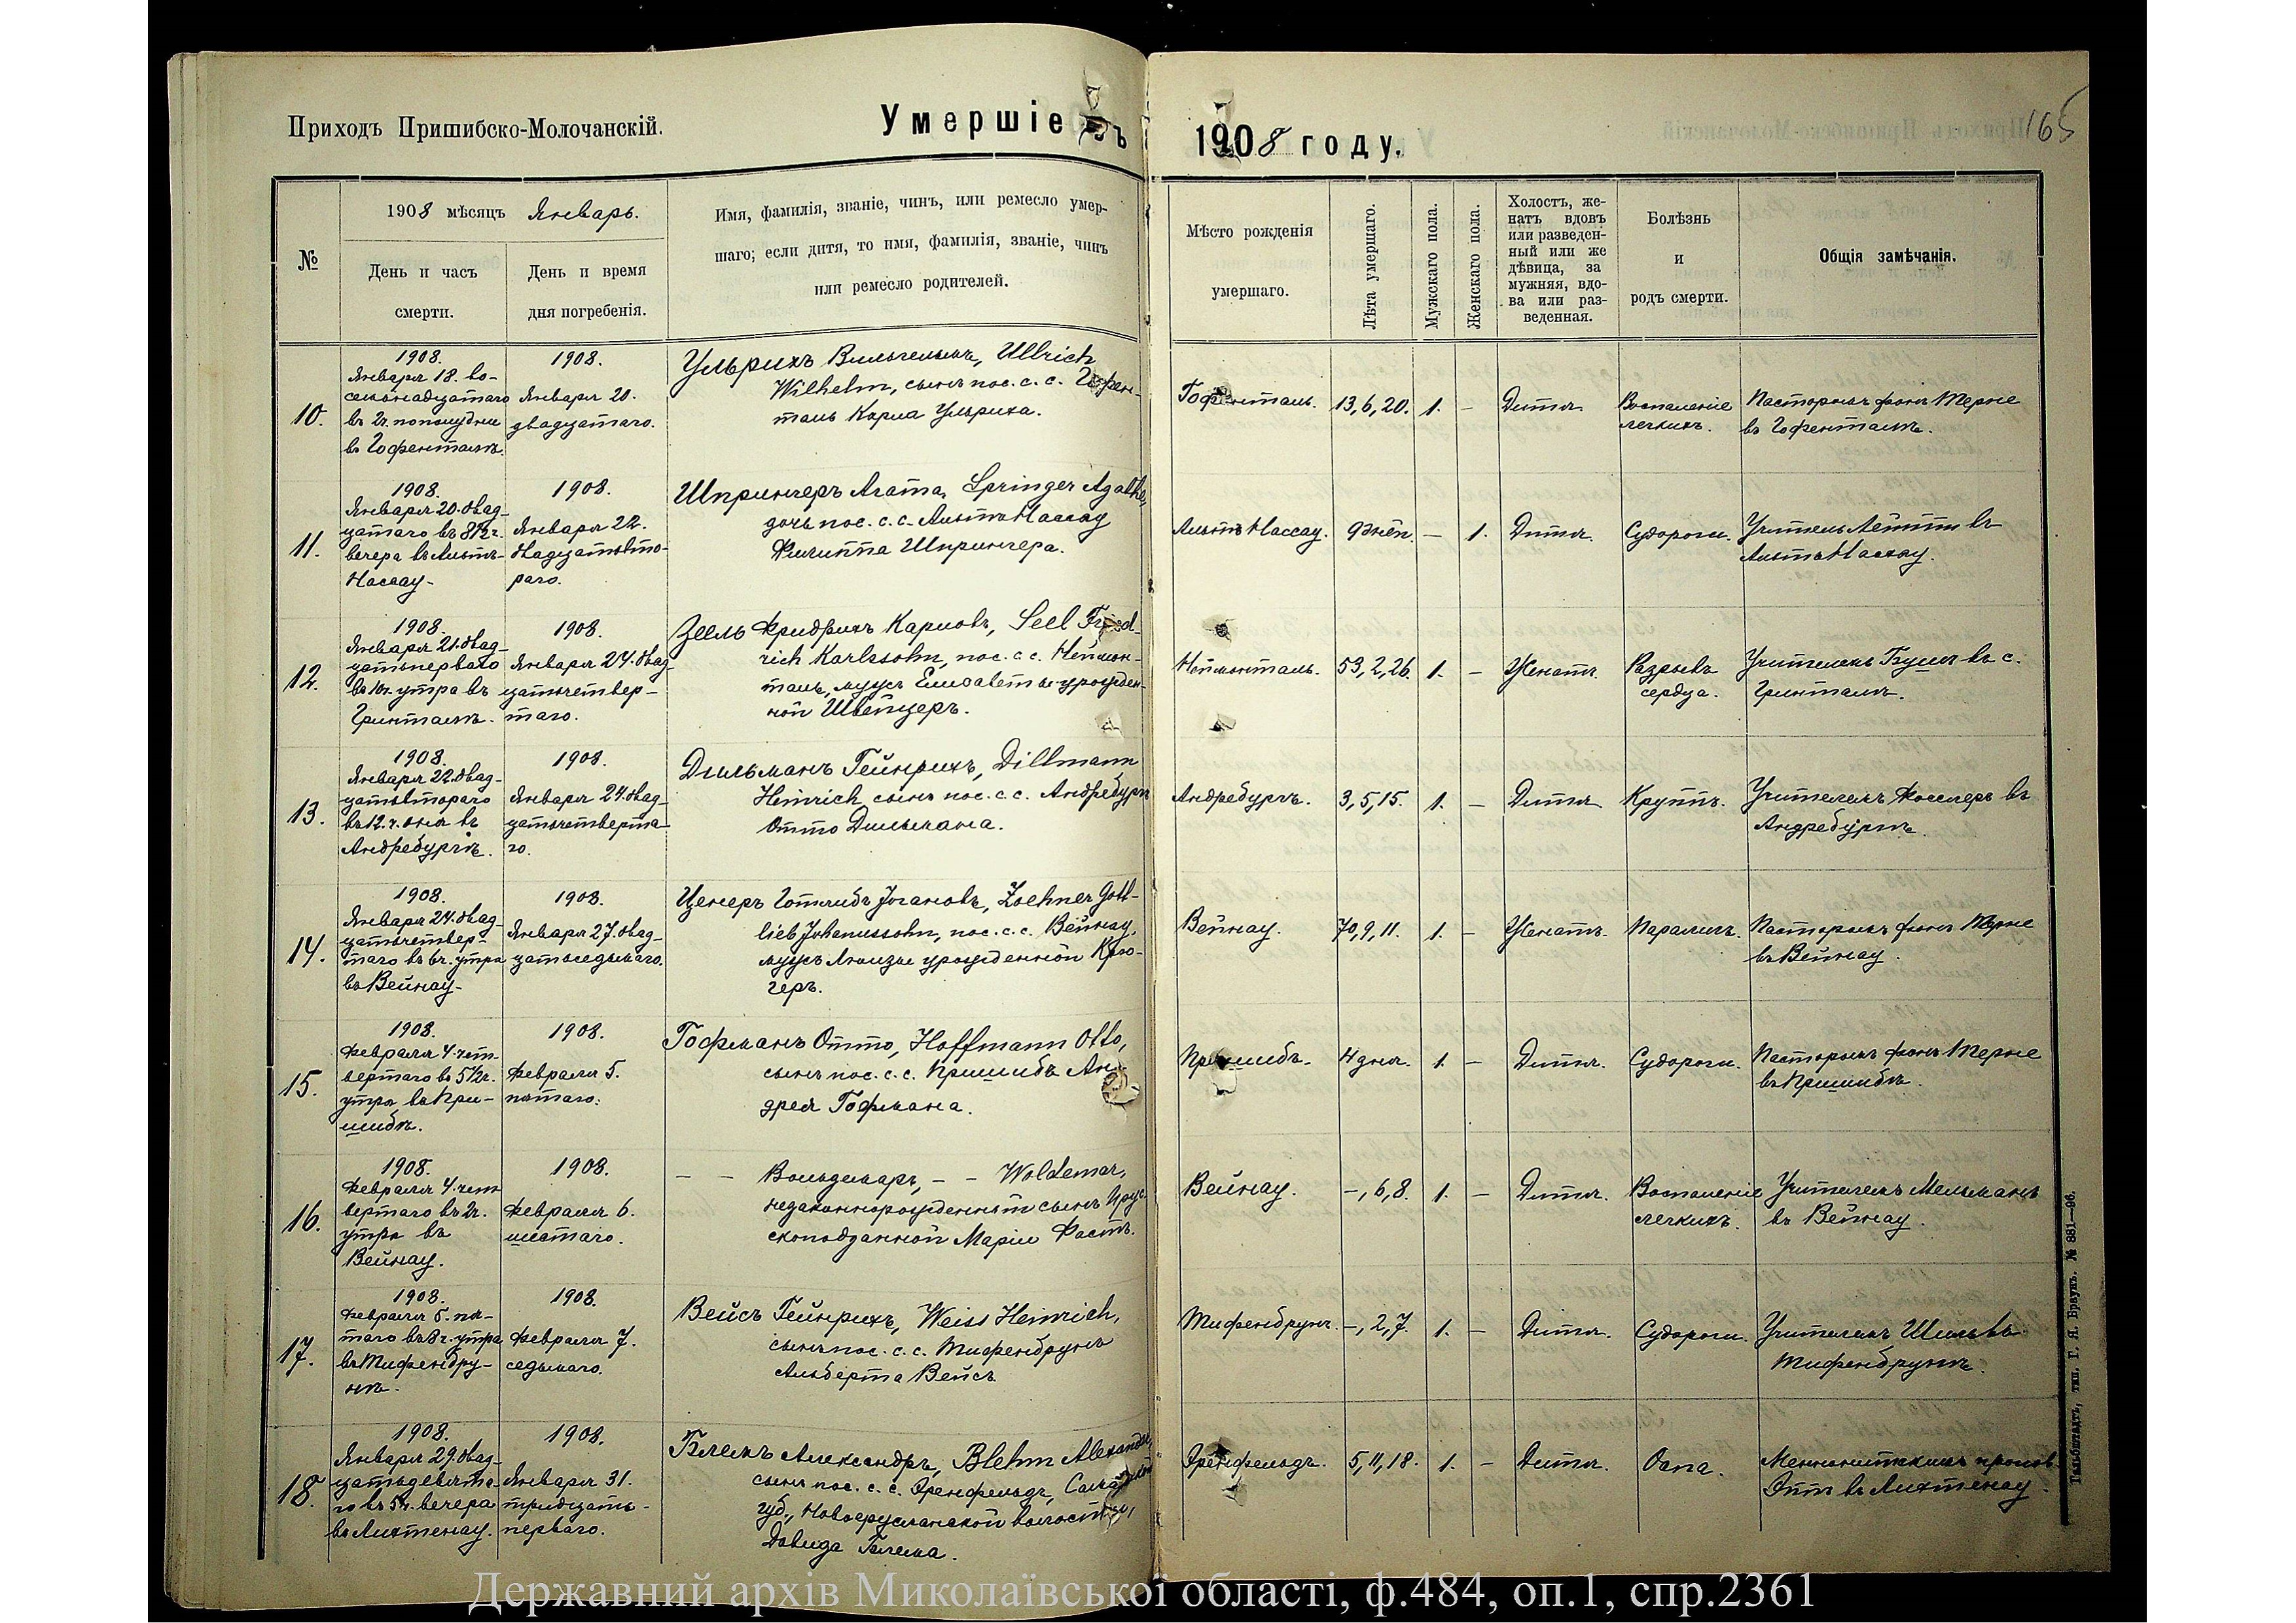 Приходъ Пришибско-Молочанскій.
Умершіе въ
1908 году.
165
№
1908 мѣсяцъ Январь.
День и часъ
смерти.
День и время
дня погребенія.
Имя, фамилія, званіе, чинъ, или ремесло умер-
шаго; если дитя, то имя, фамилія, званіе, чинъ
или ремесло родителей.
Мѣсто рожденія
умершаго.
Лѣта умершаго.
Мужскаго пола.
Женскаго пола.
Холостъ, же-
натъ вдовъ
или разведен-
ный или же
дѣвица, за
мужняя, вдо-
ва или раз-
веденная.
Болѣзнь
и
родъ смерти.
Общія замѣчанія.
10.
1908.
Января 18. во-
семьнадцатаго
въ 2ч. пополудни
въ Гофенталѣ.
1908.
Января 20.
двадцатаго.
Ульрихъ Вильгельмъ, Ullrich
Wilhelm, сынъ пос. с. с. Гофен-
таль Карла Ульриха.
Гофенталь.
13,6,20.
1.
–
Дитя.
Воспаленіе
легкихъ.
Пасторомъ фонъ Терне
въ Гофенталѣ.
11.
1908.
Января 20. двад-
цатаго въ 8½ ч.
вечера въ Альтъ-
Нассау.
1908.
Января 22.
двадцатьвто-
раго.
Шпрингеръ Агата, Springer Agathe,
дочь пос. с. с. Альтъ Нассау
Филиппа Шпрингера.
Альтъ Нассау.
9 дней.
–
1.
Дитя.
Судороги.
Учитель въ
Альтъ Нассау.
12.
1908.
Января 21. двад-
цатьперваго
въ 10ч. утра въ
Гринталѣ.
1908.
Января 24. двад-
цатьчетвер-
таго.
Зеель Фридрихъ Карловъ, Seel Fried-
rich Karlssohn, пос. с. с. Неймон-
таль, мужъ Елисаветы урожден-
ной Швейцеръ.
Неймонталь.
53,2,26.
1.
–
Женатъ.
Разрывъ
сердца.
Учителемъ въ с.
Гринталѣ.
13.
1908.
Января 22. двад-
цатьвтораго
въ 12. ч. дня въ
Андребургѣ.
1908.
Января 24. двад-
цатьчетверта-
го.
Дильманъ Гейнрихъ, Dillmann
Heinrich сынъ пос. с. с. Андребургъ
Отто Дильмана.
Андребургъ.
3,5,15.
1.
–
Дитя
Круппъ.
Учителемъ въ
Андребургѣ.
14.
1908.
Января 24. двад-
цатьчетвер-
таго въ 6ч. утра
въ Вейнау.
1908.
Января 27. двад-
цатьседьмаго.
Ценеръ Готлибъ Іогановъ, Zoehner Gott-
lieb Johannssohn, пос. с. с. Вейнау,
мужъ Луизы урожденной Крю-
геръ.
Вейнау.
70,9,11.
1.
–
Женатъ.
Параличъ.
Пасторомъ фонъ Терне
въ Вейнау.
15.
1908.
Февраля 4. чет-
вертаго въ 5½ч.
утра въ При-
шибѣ.
1908.
Февраля 5.
пятаго.
Гофманъ Отто, Hoffmann Otto,
сынъ пос. с. с. Пришибъ Ан-
дрея Гофмана.
Пришибъ.
4 дня.
1.
–
Дитя.
Судороги.
Пасторомъ фонъ Терне
въ Пришибѣ.
16.
1908.
Февраля 4. чет-
вертаго въ 2ч.
утра въ
Вейнау.
1908.
Февраля 6.
шестаго.
– – Вольдемаръ, – – Woldemar,
незаконнорожденный сынъ Прус-
скоподданной Маріи Фастъ.
Вейнау.
–,6,8.
1.
–
Дитя.
Воспаленіе
легкихъ.
Учителемъ Мельманъ
въ Вейнау.
17.
1908.
Февраля 5. пя-
таго въ 8ч. утра
въ Тифенбру-
нѣ.
1908.
Февраля 7.
седьмаго.
Вейсъ Гейнрихъ, Weiss Heinrich,
сынъ пос. с. с. Тифенбрунъ
Альберта Вейсъ
Тифенбрунъ.
–,2,7.
1.
–
Дитя.
Судороги.
Учителемъ въ
Тифенбрунѣ.
18.
1908.
Января 29. двад-
цатьдевята-
го въ 5ч. вечера
въ Лихтенау.
1908.
Января 31.
тридцать-
перваго.
Блемъ Александръ, Blehm Alexander,
сынъ пос. с. с. Эренфельдъ, Самарской
губ., Новоурусланской волости,
Давида Блема.
Эренфельдъ.
5,11,18.
1.
–
Дитя.
Оспа.
Меннонитскимъ
въ Лихтенау.
Гальбштадтъ, тип. Г. Я. Браунъ. № 881—96.
Державний архів Миколаївської області, ф.484, оп.1, спр.2361